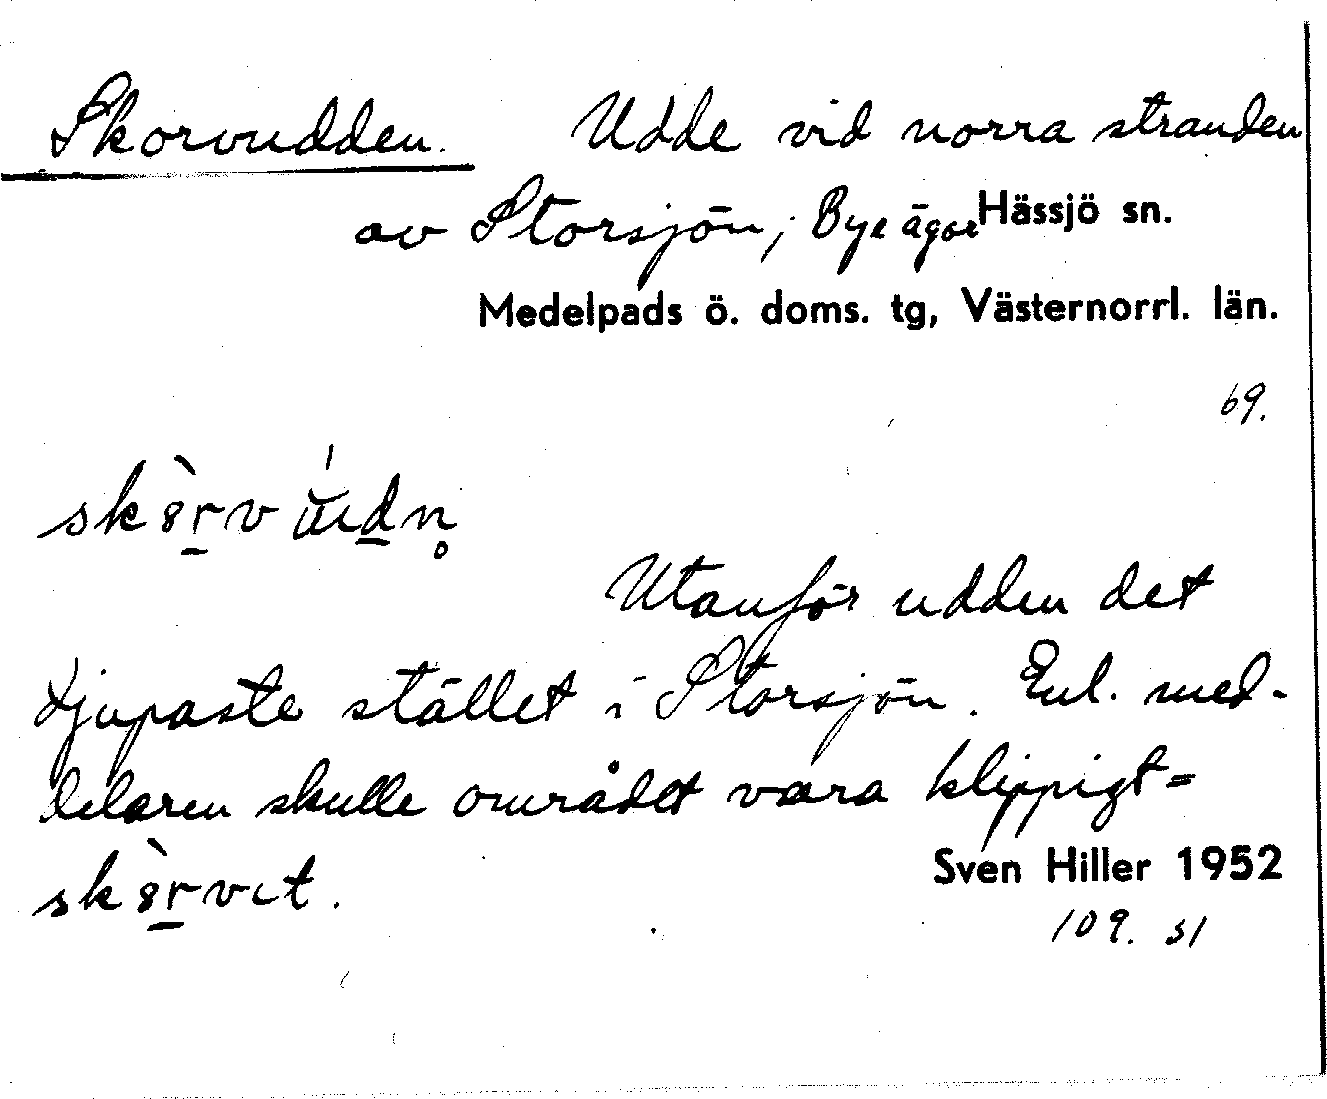 Skorvudden. Udde vid norra stranden
av Storsjön, Bye ägor Hässjö sn.
Medelpads ö. doms. tg, Västernorrl. län.
69.
sk8̀r̲v ú̆d̲n̥
Utanför udden det
djupaste stället i Storsjön. Enl. med-
delaren skulle området vara klippigt =
sk8̀r̲vıt.
Sven Hiller 1952
109. 31